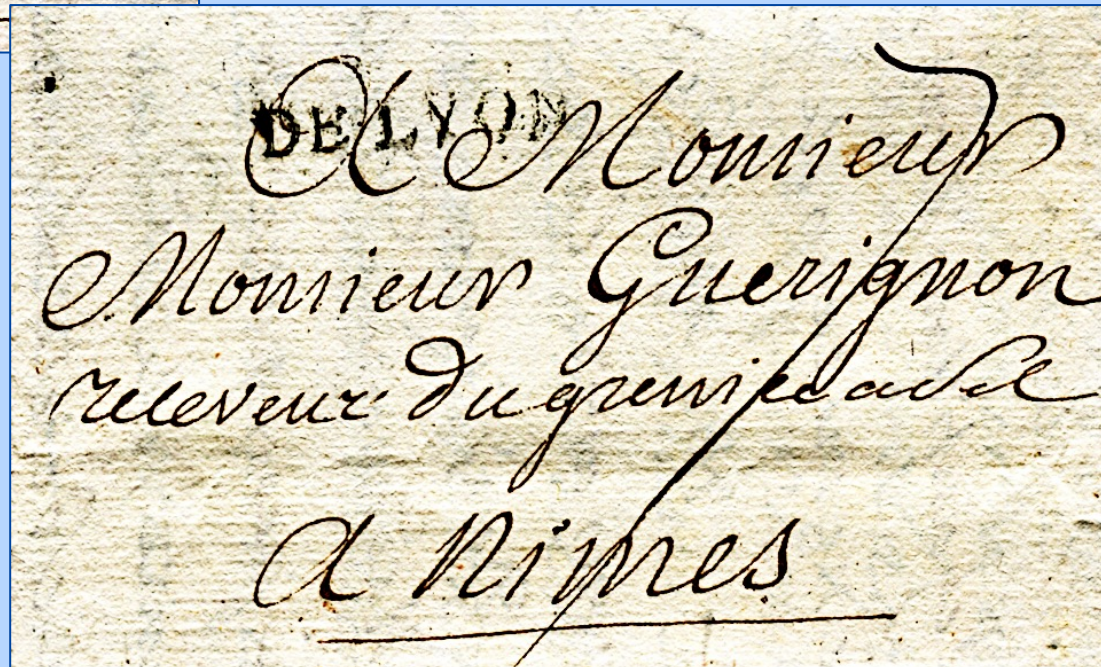 DE LYON
A Monsieur
Monsieur Guerignon
receveur du grenier a sel
a Nismes